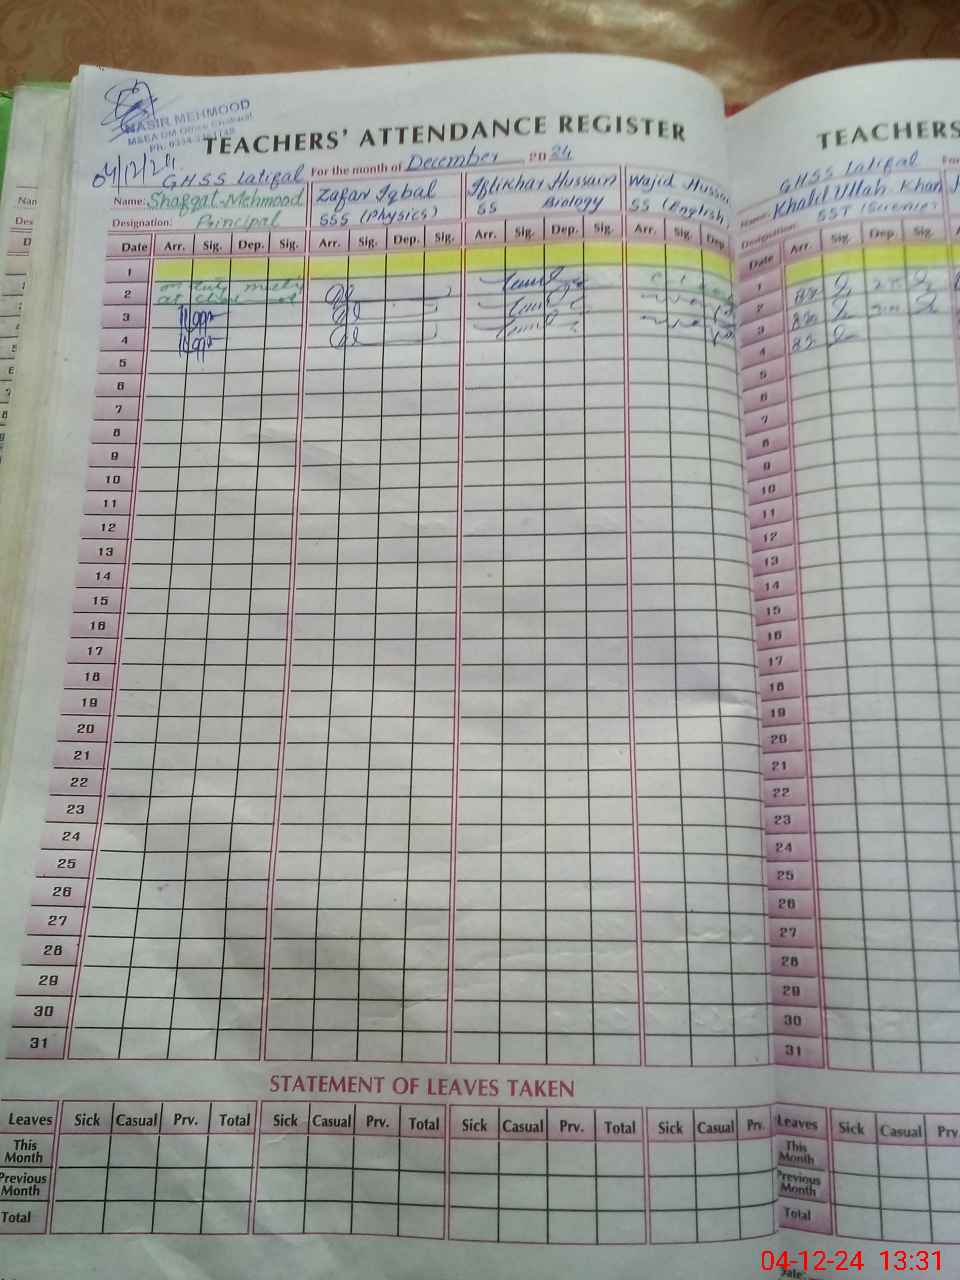 NASIR MEHMOOD
TEACHERS' ATTENDANCE REGISTER
04/12/24
For the month of December 2024
GHSS Latifal
Name: Shafqat Mehmood Zafar Iqbal Iftikhar Hussain Wajid
Designation: Principal SSS (Physics) SS Biology SS (English)
Date Arr. Sig. Dep. Sig. Arr. Sig. Dep. Sig. Arr. Sig. Dep. Sig. Arr. Sig. Dep.
1
2
3
4
5
6
7
8
9
10
11
12
13
14
15
16
17
18
19
20
21
22
23
24
25
26
27
28
29
30
31
STATEMENT OF LEAVES TAKEN
Leaves Sick Casual Prv. Total Sick Casual Prv. Total Sick Casual Prv. Total Sick Casual Prv.
This Month
Previous Month
Total
TEACHERS
GHSS Latifal
Name: Khalil Ullah Khan
Designation: SST (Science)
Date Arr. Sig. Dep. Sig.
1
2
3
4
5
6
7
8
9
10
11
12
13
14
15
16
17
18
19
20
21
22
23
24
25
26
27
28
29
30
31
Leaves Sick Casual Prv.
This Month
Previous Month
Total
04-12-24 13:31